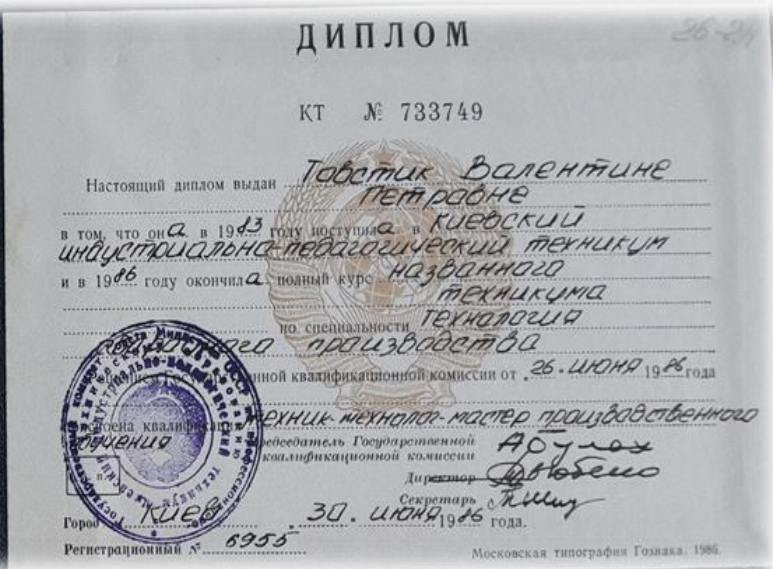 26-24
ДИПЛОМ
КТ № 733749
Настоящий диплом выдан Товстик Валентине
Петровне
в том, что она в 1983 году поступила в Киевский
индустриально-педагогический техникум
и в 1986 году окончила полный курс названного
техникума
по специальности Технология
производства
квалификационной комиссии от 26 июня 1986 года
квалификация техник-технолог-мастер производственного
обучения Председатель Государственной
квалификационной комиссии
Директор
Секретарь
Город Киев 30 июня 1986 года.
Регистрационный № 6955
Московская типография Гознака. 1986.